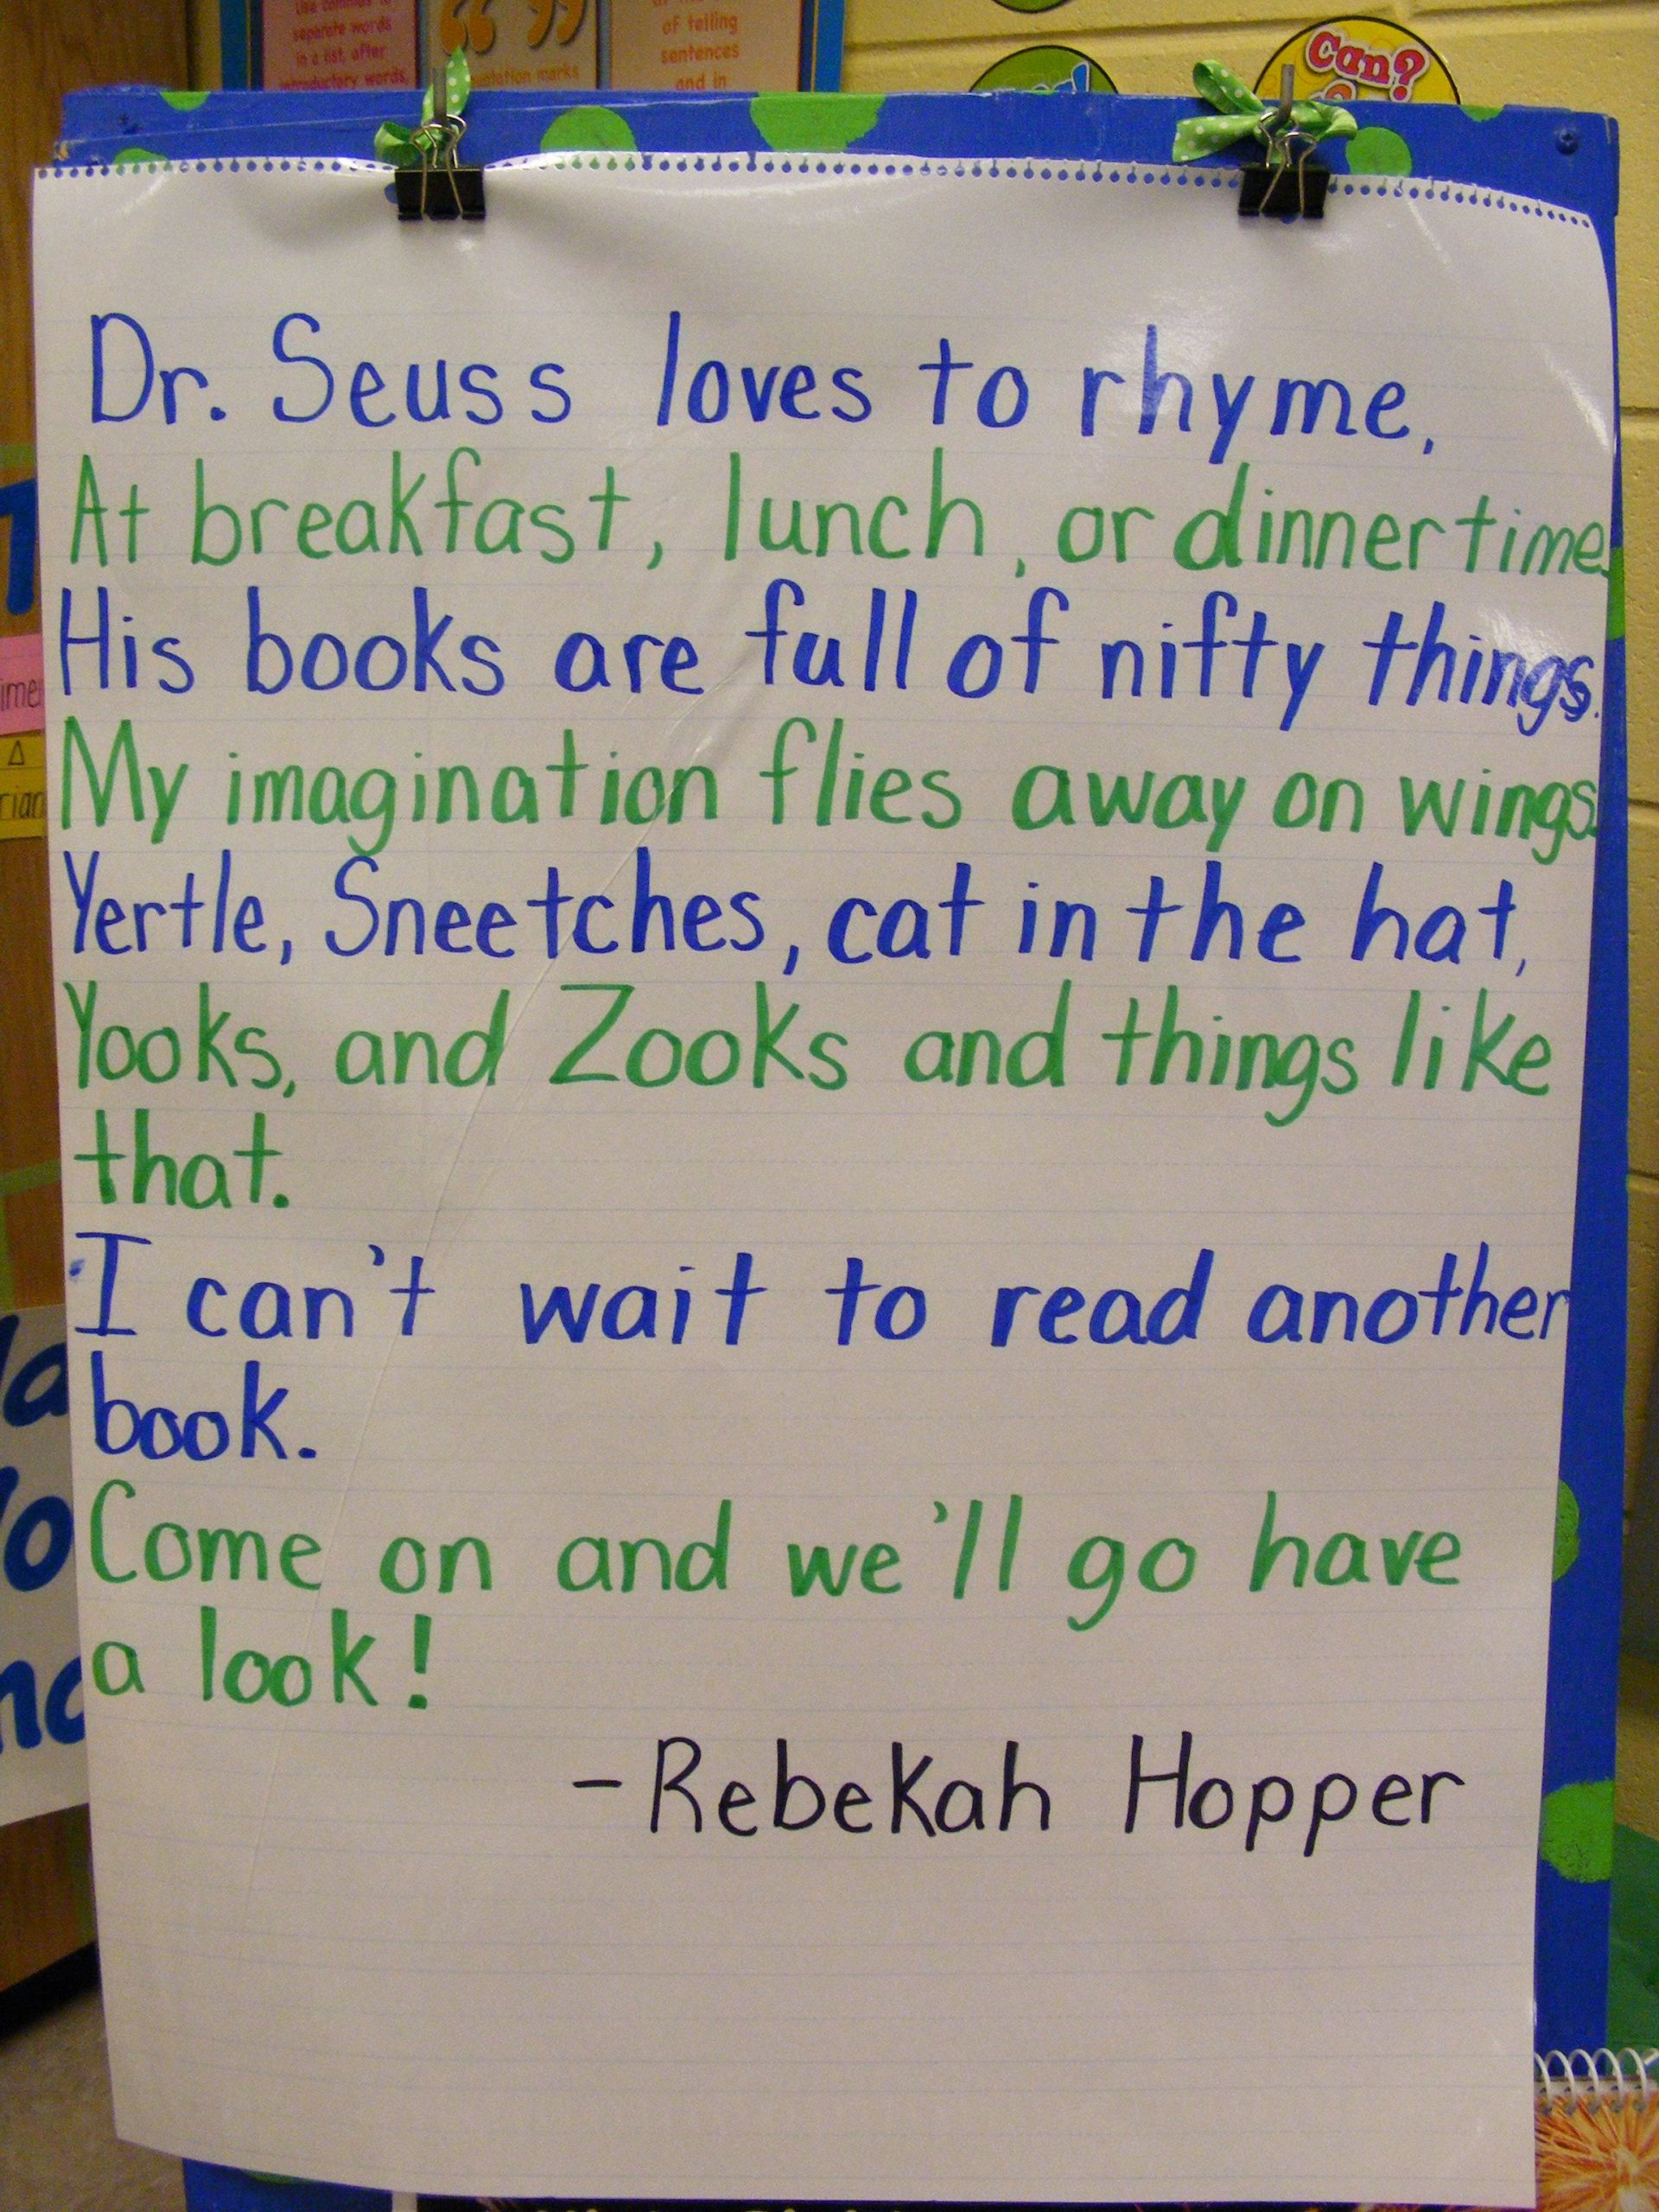 Use commas to
separate words
in a list, after
introductory words,
“ ”
quotation marks
of telling
sentences
and in
Can?
Dr. Seuss loves to rhyme,
At breakfast, lunch, or dinner time.
His books are full of nifty things.
My imagination flies away on wings.
Yertle, Sneetches, cat in the hat,
Yooks, and Zooks and things like
that.
I can't wait to read another
book.
Come on and we'll go have
a look!
-Rebekah Hopper